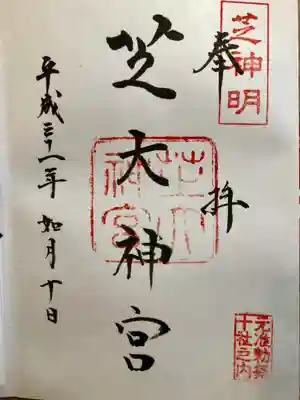 芝神明
奉拝
芝大神宮
芝大神宮
元准勅祭
十社之内
平成三十一年 如月十日